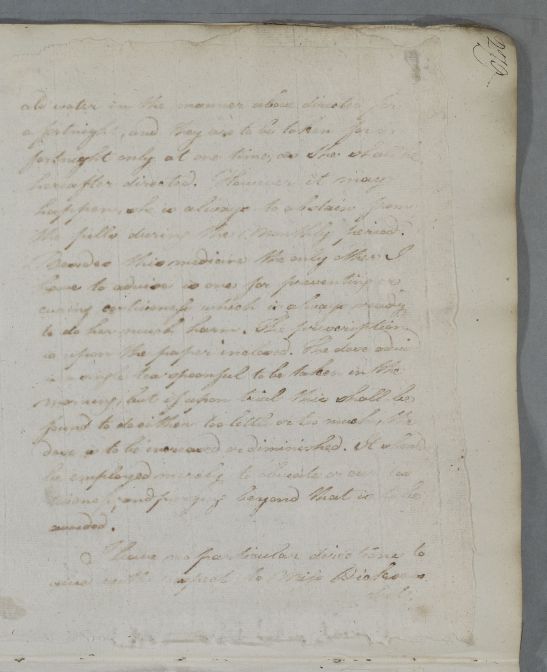 old water in the manner above directed for
a fortnight, and they are to be taken for a
fortnight only at one time, as she shall be
hereafter directed. However it may
happen, she is always to abstain from
the pills during the monthly period.
Besides this medicine the only other I
have to advise is one for preventing or
curing costiveness which is always ready
to do her much harm. The prescription
is upon the paper inclosed. The dose
is a single tea spoonful to be taken in the
morning, but if upon trial this shall be
found to do either too little or too much, the
dose is to be increased or diminished. It should
be employed merely to obviate or cure
and purging beyond that is to be
avoided.
I have no particular directions to
with respect to Miss